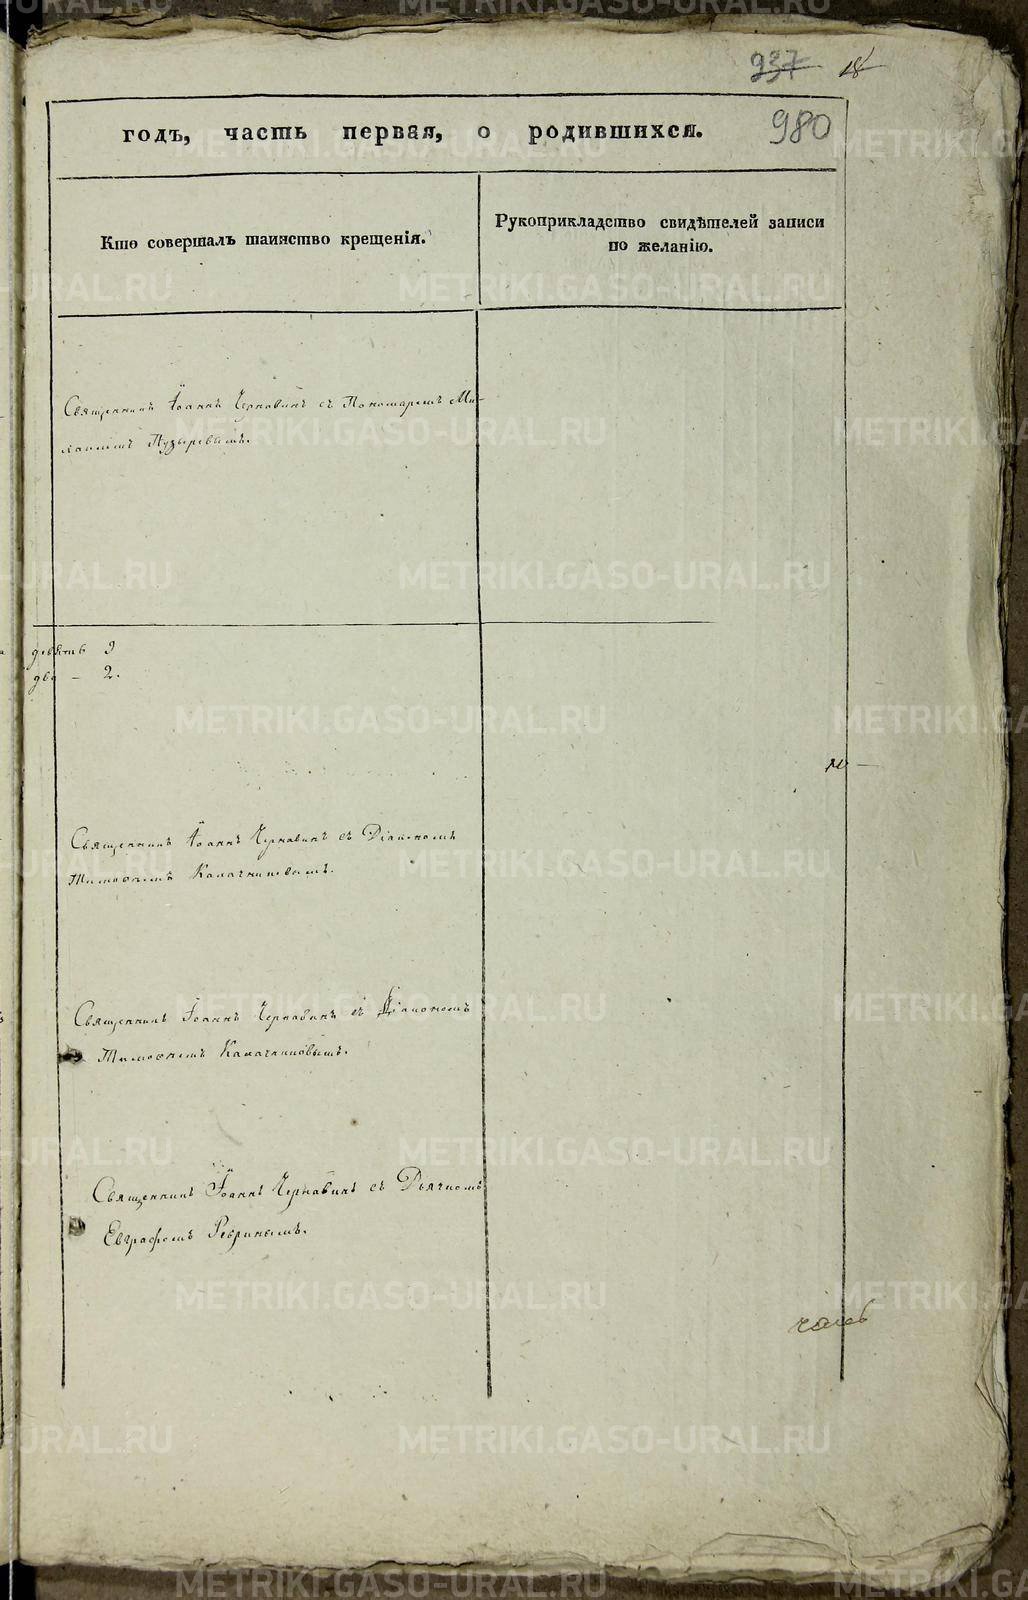 937 18
980
годъ, часть первая, о родившихся.
Кто совершалъ таинство крещенія.
Рукоприкладство свидѣтелей записи
по желанію.
Священникъ Іоаннъ Чернавинъ съ Пономаремъ Ми-
хаиломъ Пузыревымъ.
девять 9
два — 2.
Священникъ Іоаннъ Чернавинъ съ Діакономъ
Тимоѳеемъ Калачниковымъ.
Священникъ Іоаннъ Чернавинъ съ Діакономъ
Тимоѳеемъ Калачниковымъ.
Священникъ Іоаннъ Чернавинъ съ Дьячкомъ
Евграфомъ Ребринымъ.
METRIKI.GASO-URAL.RU